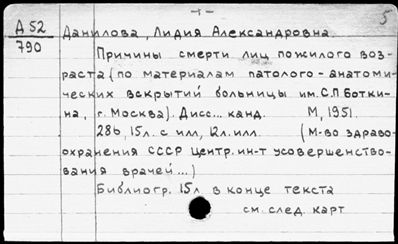 -1-
5
Д 52
790
Данилова, Лидия Александровна.
Причины смерти лиц пожилого воз-
раста (по материалам патолого-анатоми-
ческих вскрытий больницы им. С.П. Ботки-
на, г. Москва). Дисс... канд. М, 1951.
286, 15л. с илл, 12л. илл. (М-во здраво-
охранения СССР Центр. ин-т усовершенство-
вания врачей...)
Библиогр. 15л в конце текста
см. след. карт